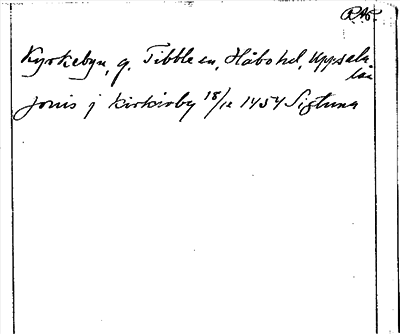 R.A.P.
Kyrkebyn, g. Tibble sn, Håbo hd, Uppsala
län
jonis j kirkioby 18/12 1454 Sigtuna